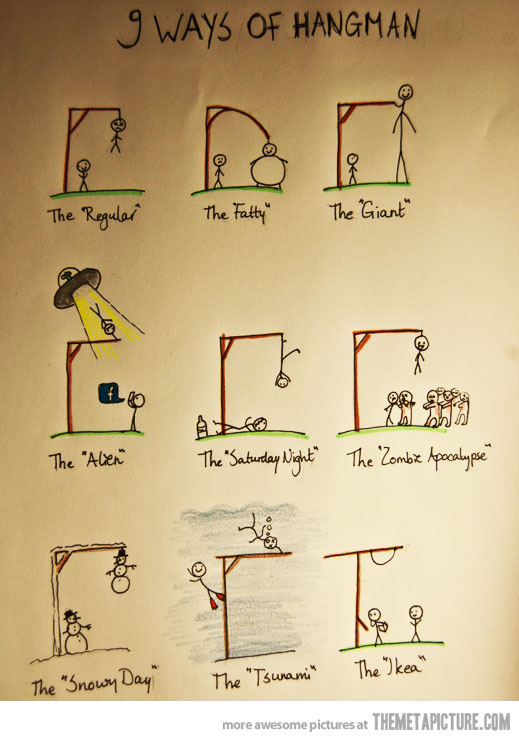 9 WAYS OF HANGMAN
The "Regular" The "Fatty" The "Giant"
f
The "Alien" The "Saturday Night" The "Zombie Apocalypse"
The "Snowy Day" The "Tsunami" The "Ikea"
more awesome pictures at THEMETAPICTURE.COM